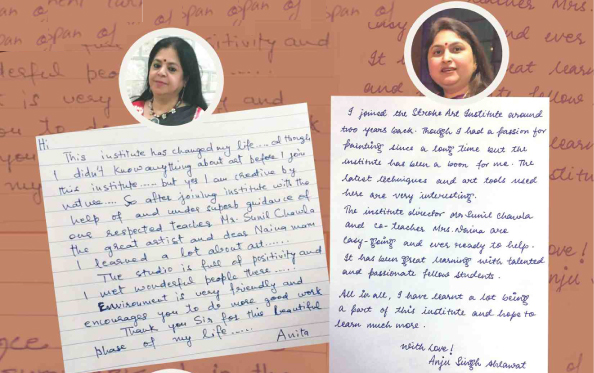 Hi
This institute has changed my life.... al though
I didn't know anything about art before I join
this institute..... but yes I am creative by
nature.... So after joining institute with the
help of and under superb guidance of
our respected teacher Mr. Sunil Chawla
the great artist and dear Naina mam
I learned a lot about art......
The studio is full of positivity and
I met wonderful people there.....
Environment is very friendly and
encourages you to do more good work
Thank you Sir for this beautiful
phase of my life......
Anita
I joined the Stroke Art Institute around
two years back. Though I had a passion for
painting since a long time but the
institute has been a boon for me. The
latest techniques and art tools used
here are very interesting.
The institute director Mr. Sunil Chawla
and co-teacher Mrs. Naina are
easy-going and ever ready to help.
It has been great learning with talented
and passionate fellow students.
All in all, I have learnt a lot being
a part of this institute and hope to
learn much more.
With Love!
Anju Singh Ahlawat